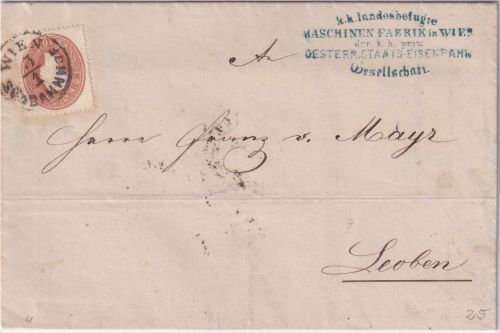 k.k. landesbefugte
MASCHINEN FABRIK in WIEN
der k. k. priv.
OESTERR. STAATS-EISENBAHN
Gesellschaft.
WIEN
7
1
An
Herrn Franz v. Mayr
Leoben
25